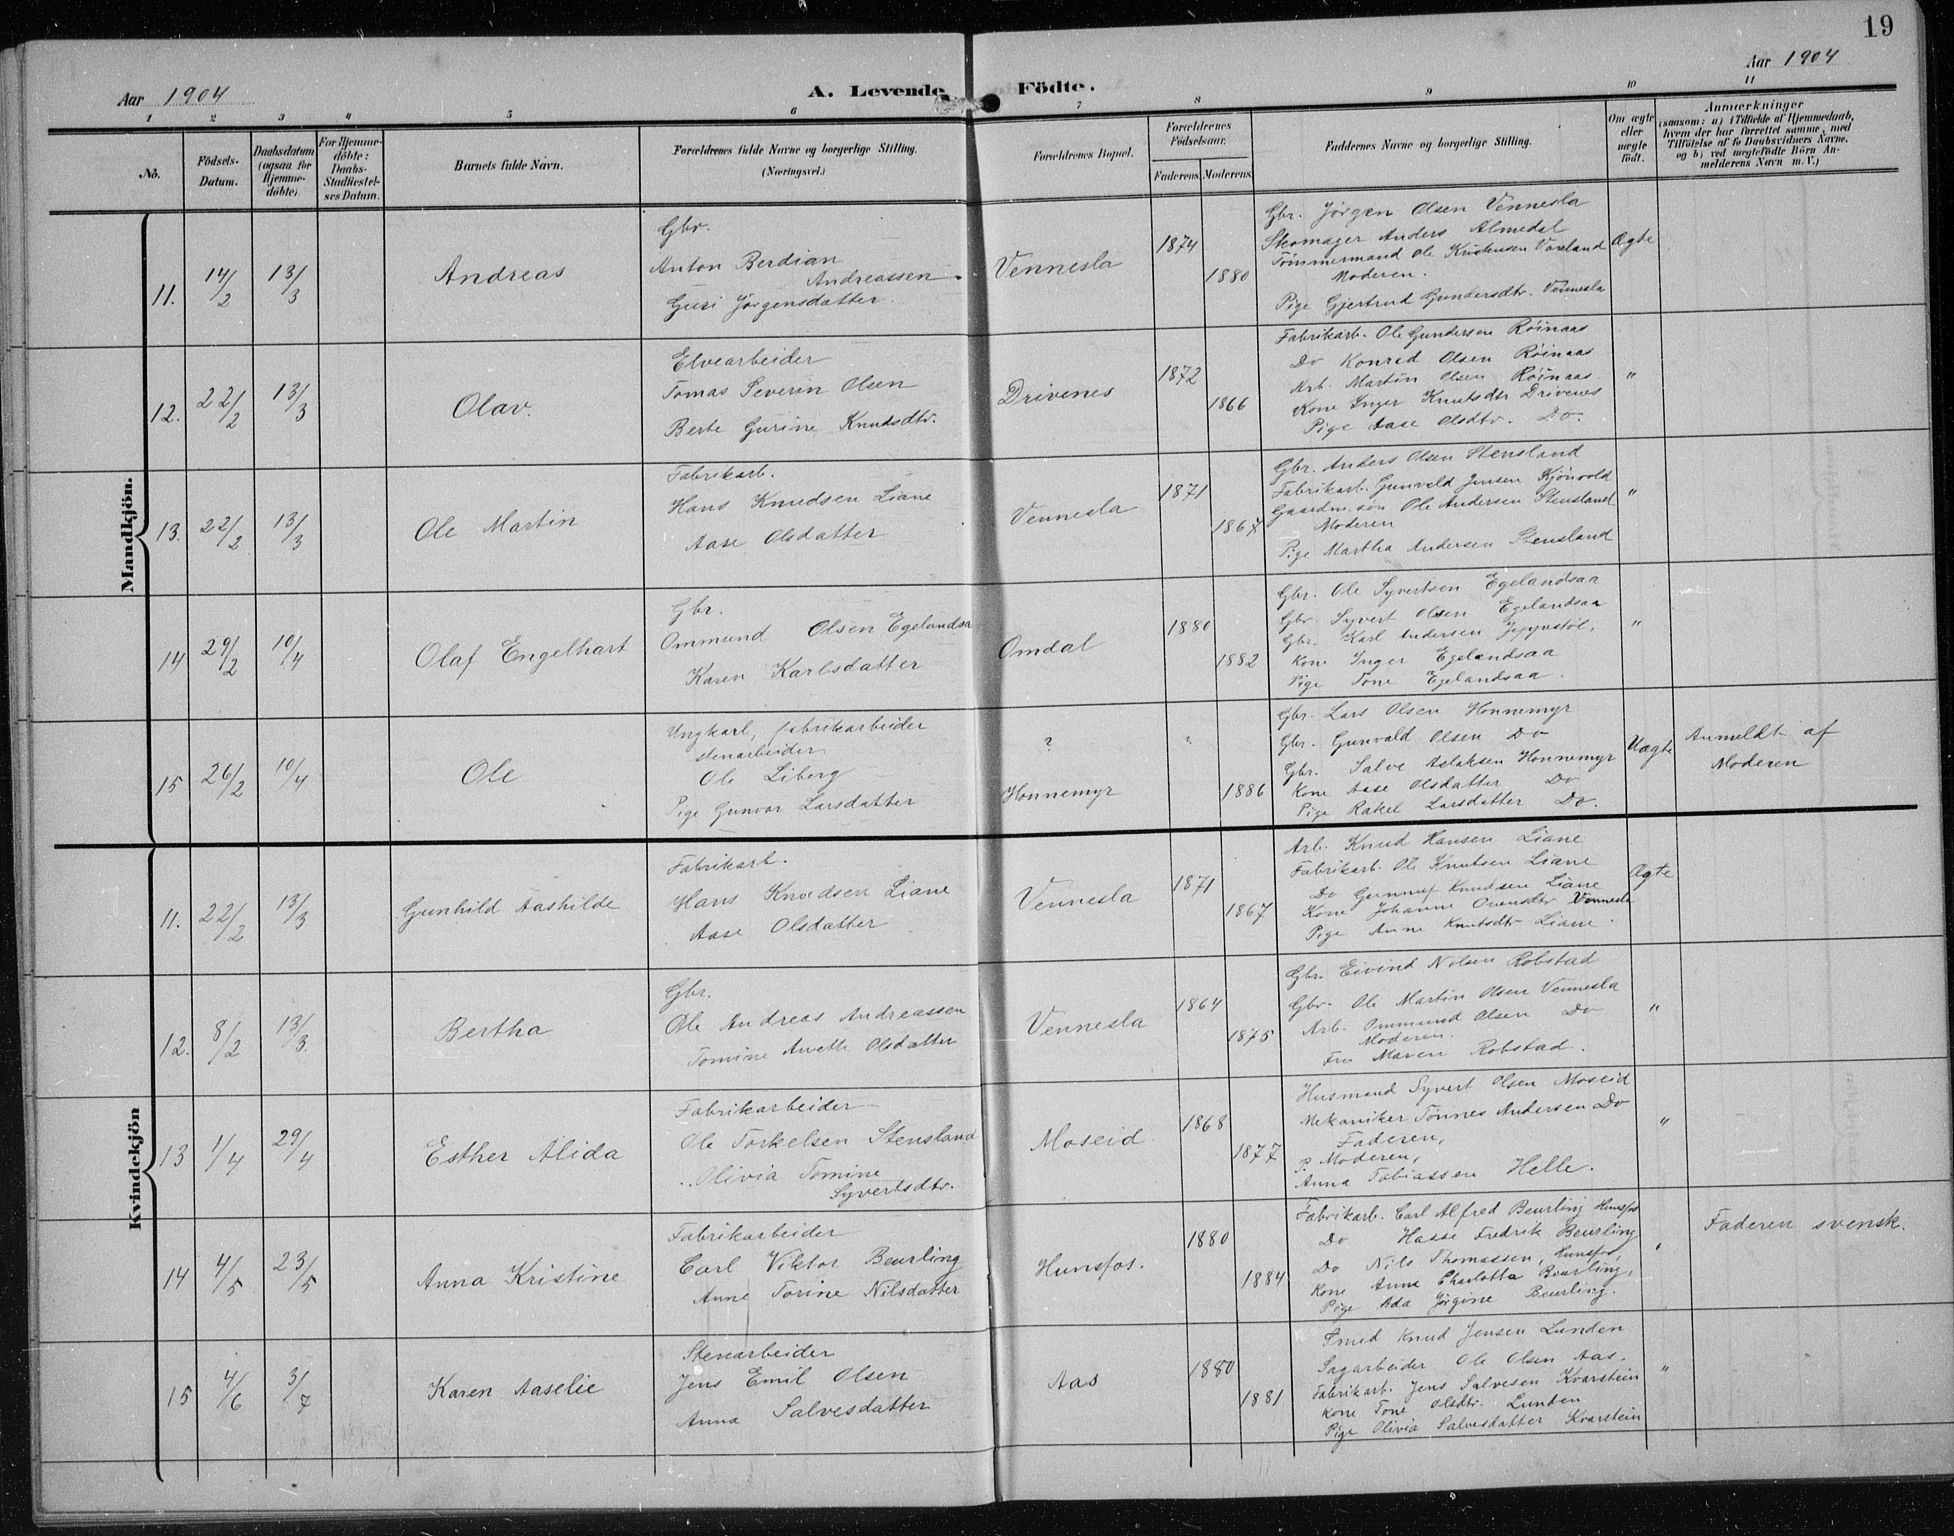 19
Aar 1904
A. Levende Födte.
Aar 1904
1 2 3 4 5 6 7 8 9 10 11
No.
Födsels-Datum.
Daabsdatum (ogsaa for Hjemme-döbte).
For Hjemme-döbte: Daabs-Stadfæstel-ses Datum.
Barnets fulde Navn.
Forældrenes fulde Navne og borgerlige Stilling.
(Næringsvei.)
Forældrenes Bopæl.
Forældrenes Födselsaar.
Faderens. Moderens.
Faddernes Navne og borgerlige Stilling.
Om ægte eller uægte födt.
Anmærkninger
(saasom: a) i Tilfælde af Hjemmedaab, hvem der har forrettet samme, med Tilföielse af to Daabsvidners Navne, og b) ved uægtefödte Börn Anmelderens Navn m. V.)
Mandkjön.
11. 14/2 13/3 Andreas
Gbr.
Anton Berdian
Andreassen
Guri Jørgensdatter.
Vennesla
1874
1880
Gbr. Jørgen Olsen Vennesla
Skomager Anders Almedal
Tømmermand Ole Kristensen Voreland
Moderen.
Pige Gjertrud Gundersdtr. Vennesla
Ægte
12. 22/2 13/3 Olav.
Elvearbeider
Tomas Severin Olsen
Berte Gurine Knudsdtr.
Drivenes
1872
1866
Fabrikarb. Ole Gundersen Röinaas
Do Konrad Olsen Röinaas
Arb. Martin Olsen Röinaas
Kone Inger Knutsdtr Drivenes
Pige Aase Olsdtr. Do.
"
13. 22/2 13/3 Ole Martin
Fabrikarb.
Hans Knudsen Liane
Aase Olsdatter
Vennesla
1871
1867
Gbr. Anders Olsen Stensland
Fabrikarb. Gunvald Jensen Kjönvold
Gaardm. søn Ole Andersen Stensland
Moderen
Pige Martha Andersen Stensland
"
14 29/2 10/4 Olaf Engelhart
Gbr.
Ommund Olsen Egelandsa
Karen Karlsdatter
Omdal
1880
1882
Gbr. Ole Syvertsen Egelandsaa
Gbr. Syvert Olsen Egelandsaa
Gbr. Karl Andersen
Kone Inger Egelandsaa
Pige Tone Egelandsaa.
"
15 26/2 10/4 Ole
Ungkarl, fabrikarbeider
stenarbeider
Ole Liberg
Pige Gunvor Larsdatter
?
Honnemyr
?
1886
Gbr. Lars Olsen Honnemyr
Gbr. Gunvald Olsen Do
Gbr. Salve Aslaksen Honnemyr
Kone Aase Olsdatter Do
Pige Rakel Larsdatter Do.
Uægte
Anmeldt af
Moderen
Kvindekjön
11. 22/2 13/3 Gunhild Aashilde
Fabrikarb.
Hans Knudsen Liane
Aase Olsdatter
Vennesla
1871
1867
Arb. Knud Hansen Liane
Fabrikarb. Ole Knutsen Liane
Do Gunnuf Knudsen Liane
Kone Johanne Vennesla
Pige Anne Knutsdtr Liane.
Ægte
12. 8/2 13/3 Bertha
Gbr.
Ole Andreas Andreassen
Tomine Anette Olsdatter
Vennesla
1864
1875
Gbr. Eivind Nilsen Robstad
Gbr. Ole Martin Olsen Vennesla
Arb. Ommund Olsen Do
Moderen.
Fru Maren Robstad.
"
13 1/4 29/4 Esther Alida
Fabrikarbeider
Ole Torkelsen Stensland
Olivia Tomine
Syvertsdtr.
Moseid
1868
1877
Husmand Syvert Olsen Moseid
Mekaniker Tønnes Andersen Do
Faderen,
Moderen,
P. Anna Tobiassen Helle.
"
14 4/5 23/5 Anna Kristine
Fabrikarbeider
Carl Viktor Beurling
Anne Torine Nilsdatter
Hunsfos.
1880
1884
Fabrikarb. Carl Alfred Beurling Hunsfos
Do Hasse Fredrik Beurling
Do Nils Thomassen, Hunsfos,
Kone Anna Charlotta Beurling,
Pige Ada Jørgine Beurling.
"
Faderen svensk.
15 4/6 3/7 Karen Aaselie
Stenarbeider
Jens Emil Olsen
Anna Salvesdatter
Aas
1880
1881
Smed Knud Jensen Lunden
Sagarbeider Ole Olsen Aas.
Fabrikarb. Jens Salvesen Kvarstein
Kone Tone Olsdtr. Lunden
Pige Olivia Salvesdatter Kvarstein
"